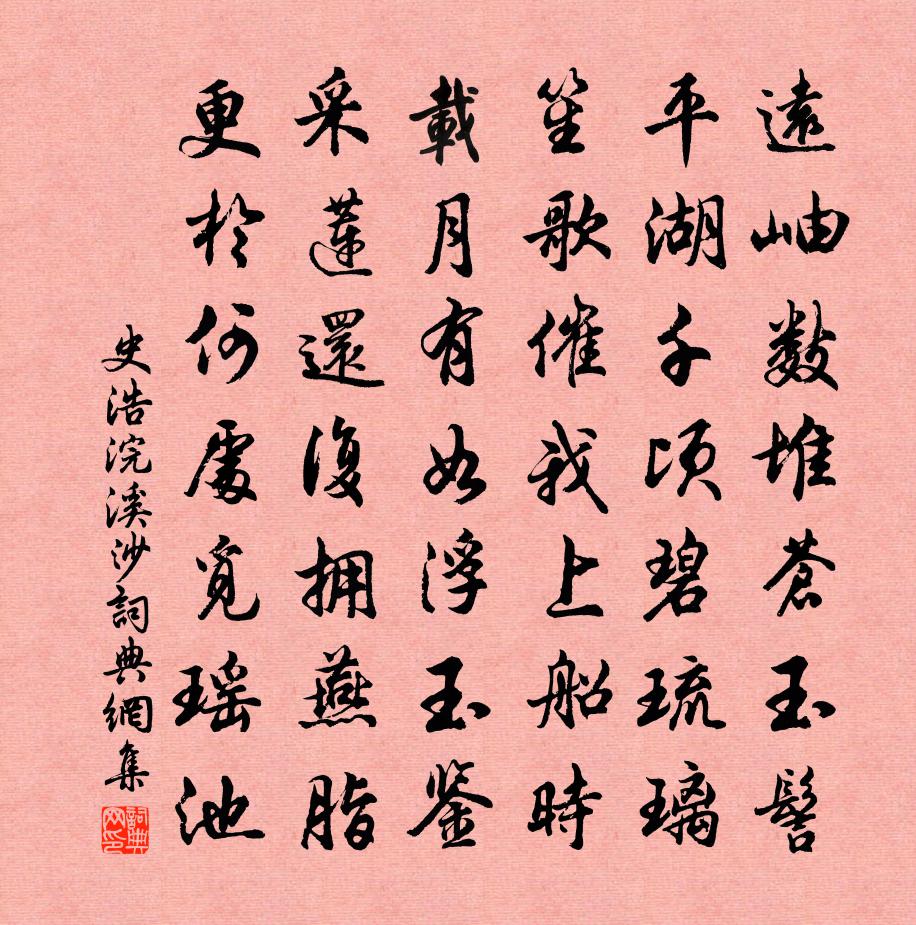 遠岫數堆蒼玉髻
平湖千頃碧琉璃
笙歌催我上船時
載月有如浮玉鉴
采蓮還復拥燕脂
更於何處覓瑶池
史浩浣溪沙詞典網集
詞典网印